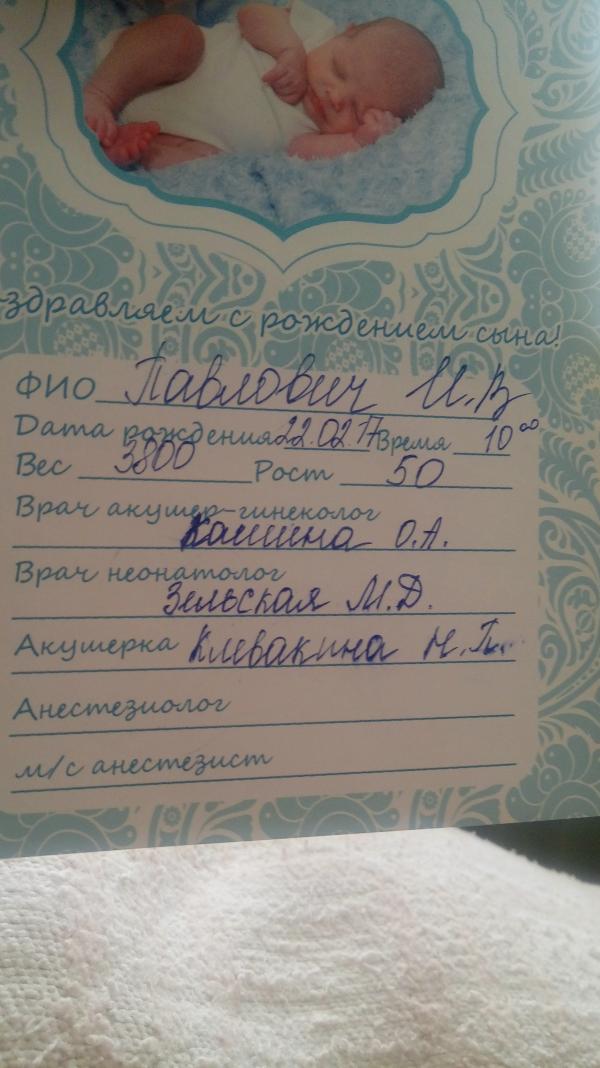 здравляем с рождением сына!
ФИО Павлович И.В
Дата рождения 22.02.17 Время 10⁰⁰
Вес 3800 Рост 50
Врач акушер-гинеколог
Кашина О.А.
Врач неонатолог
Зельская М.Д.
Акушерка Клевакина Н.П.
Анестезиолог
м/с анестезист